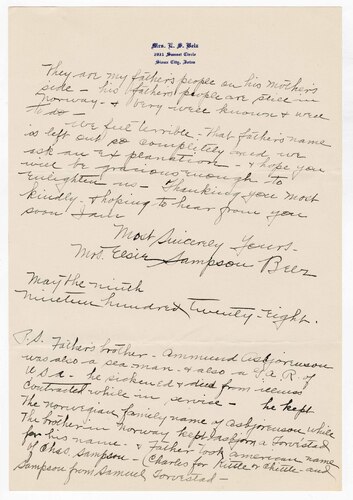 Mrs. L. S. Belz
2851 Sunset Circle
Sioux City, Iowa
They are my fathers people on his mothers
side - his fathers people are still in
Norway - & very well known & well
to do -
We feel terrible - that fathers name
is left out so completely and we
ask an explanation - & hope you
will be gracious enough to
enlighten us - Thanking you most
kindly - & hoping to hear from you
soon I am
Most Sincerely Yours -
Mrs. Elsie Sampson Belz
May the ninth
nineteen hundred twenty-Eight.
P.S. Father's brother - Ammund Asbjornson
was also a sea man - & also a G.A.R. of
U.S.A - he sickened & died from illness
contracted while in service - he kept
the Norwegian family name of Asbjornson while
the brother in Norway kept Tovistad
for his name - & Father took American name
of Chas. Sampson - (Charles for Kittle or Chittle - and
Sampson from Samuel Tovistad -